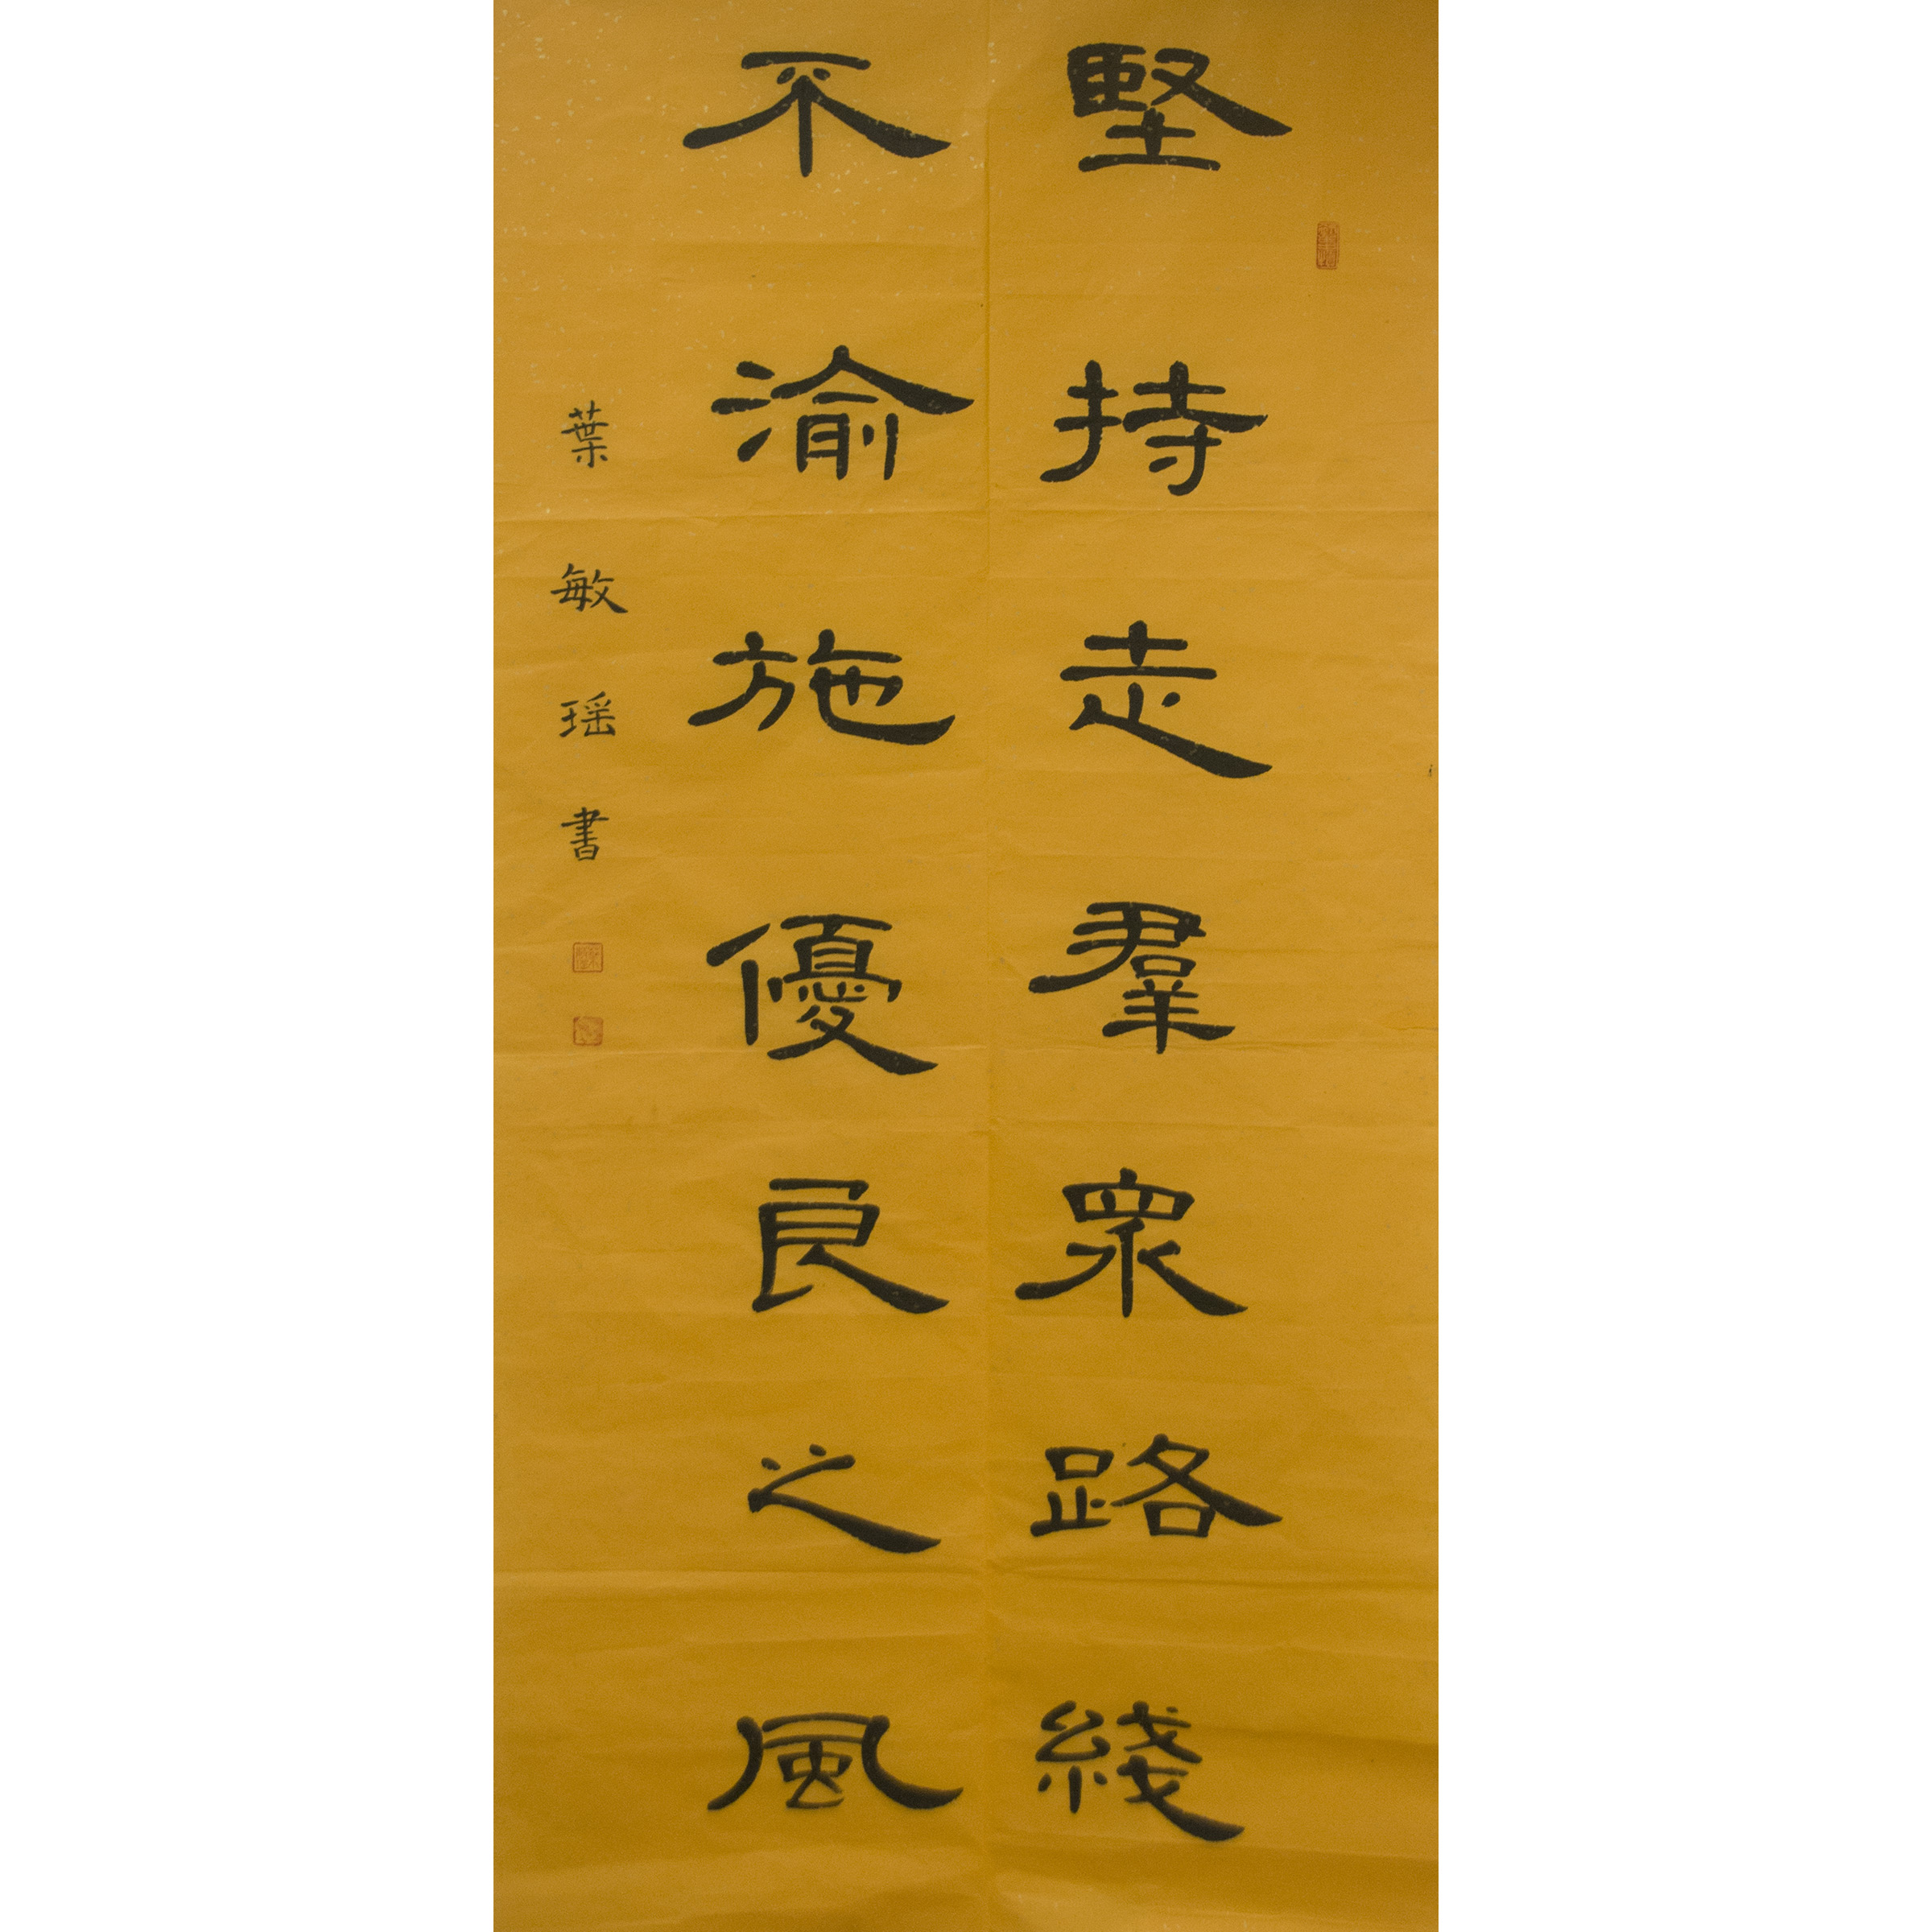 堅持走羣衆路綫
不渝施優良之風
葉敏瑶書